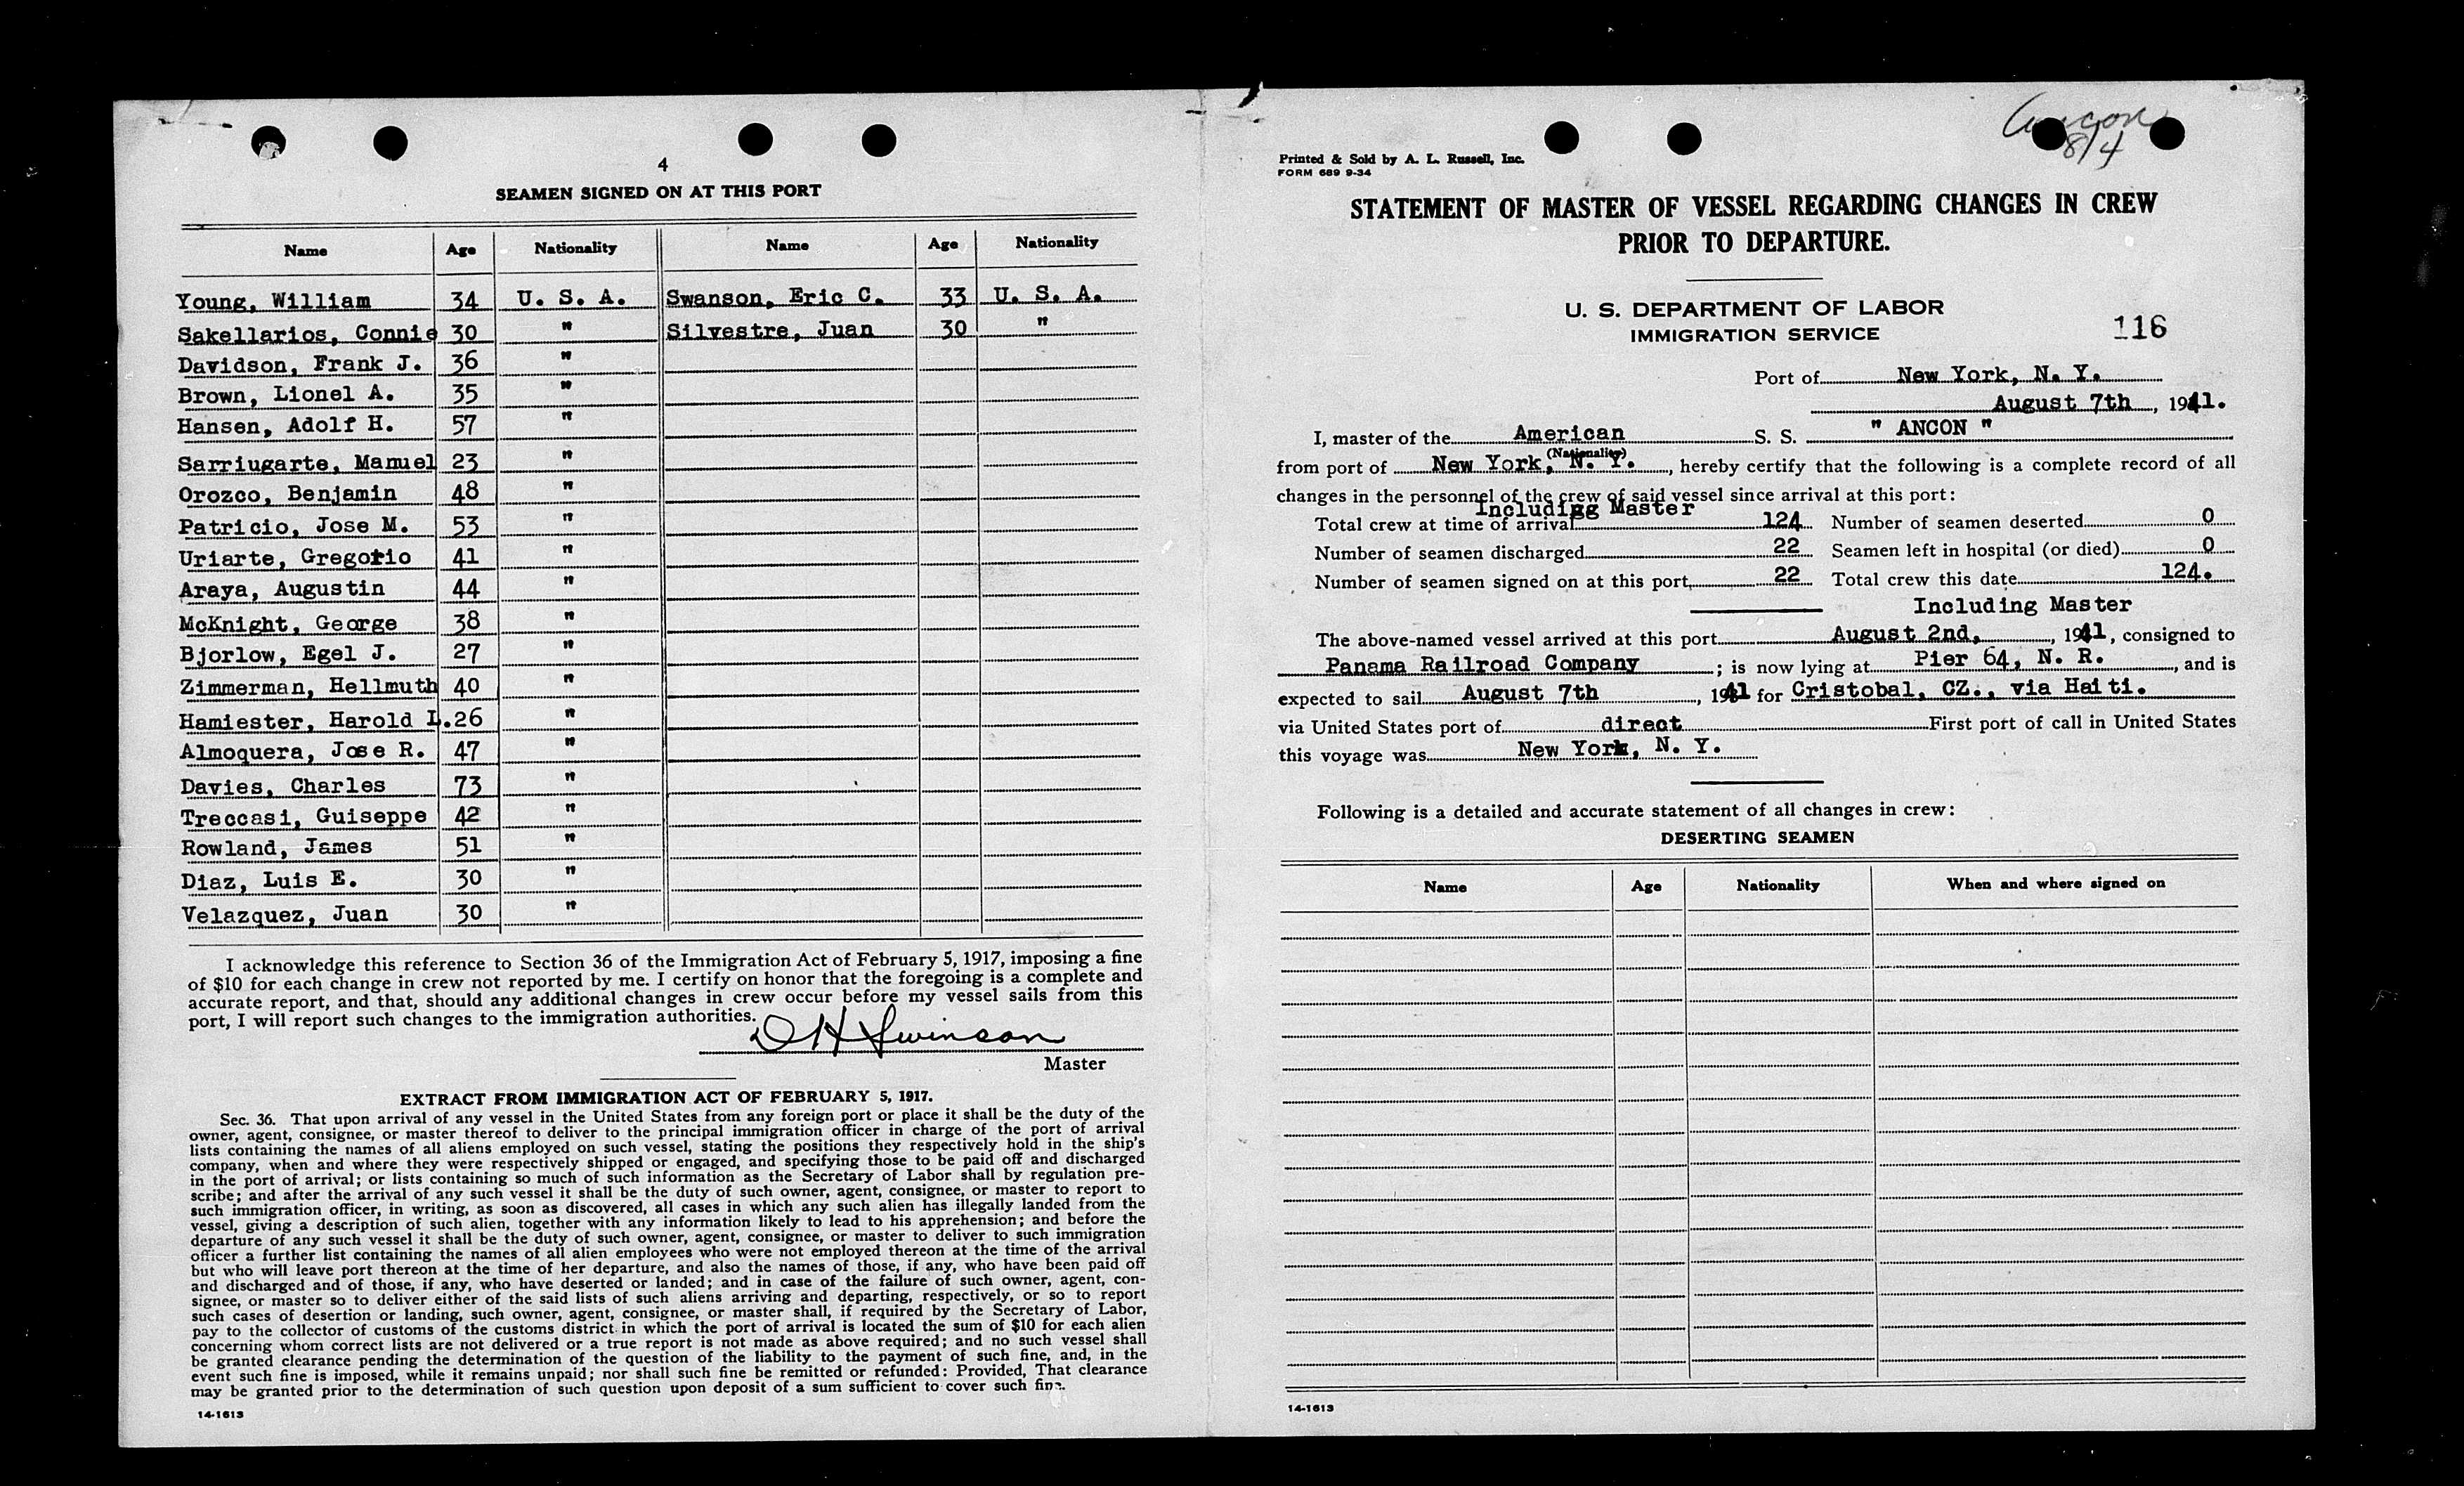 4
SEAMEN SIGNED ON AT THIS PORT
Name Age Nationality Name Age Nationality
Young, William 34 U. S. A. Swanson, Eric C. 33 U. S. A.
Sakellarios, Connie 30 " Silvestre, Juan 30 "
Davidson, Frank J. 36 "
Brown, Lionel A. 35 "
Hansen, Adolf H. 57 "
Sarriugarte, Manuel 23 "
Orozco, Benjamin 48 "
Patricio, Jose M. 53 "
Uriarte, Gregorio 41 "
Araya, Augustin 44 "
McKnight, George 38 "
Bjorlow, Egel J. 27 "
Zimmerman, Hellmuth 40 "
Hamiester, Harold L. 26 "
Almoquera, Jose R. 47 "
Davies, Charles 73 "
Treccasi, Guiseppe 42 "
Rowland, James 51 "
Diaz, Luis E. 30 "
Velazquez, Juan 30 "
I acknowledge this reference to Section 36 of the Immigration Act of February 5, 1917, imposing a fine
of $10 for each change in crew not reported by me. I certify on honor that the foregoing is a complete and
accurate report, and that, should any additional changes in crew occur before my vessel sails from this
port, I will report such changes to the immigration authorities.
D H Swinson
Master
EXTRACT FROM IMMIGRATION ACT OF FEBRUARY 5, 1917.
Sec. 36. That upon arrival of any vessel in the United States from any foreign port or place it shall be the duty of the
owner, agent, consignee, or master thereof to deliver to the principal immigration officer in charge of the port of arrival
lists containing the names of all aliens employed on such vessel, stating the positions they respectively hold in the ship's
company, when and where they were respectively shipped or engaged, and specifying those to be paid off and discharged
in the port of arrival; or lists containing so much of such information as the Secretary of Labor shall by regulation pre-
scribe; and after the arrival of any such vessel it shall be the duty of such owner, agent, consignee, or master to report to
such immigration officer, in writing, as soon as discovered, all cases in which any such alien has illegally landed from the
vessel, giving a description of such alien, together with any information likely to lead to his apprehension; and before the
departure of any such vessel it shall be the duty of such owner, agent, consignee, or master to deliver to such immigration
officer a further list containing the names of all alien employees who were not employed thereon at the time of the arrival
but who will leave port thereon at the time of her departure, and also the names of those, if any, who have been paid off
and discharged and of those, if any, who have deserted or landed; and in case of the failure of such owner, agent, con-
signee, or master so to deliver either of the said lists of such aliens arriving and departing, respectively, or so to report
such cases of desertion or landing, such owner, agent, consignee, or master shall, if required by the Secretary of Labor,
pay to the collector of customs of the customs district in which the port of arrival is located the sum of $10 for each alien
concerning whom correct lists are not delivered or a true report is not made as above required; and no such vessel shall
be granted clearance pending the determination of the question of the liability to the payment of such fine, and, in the
event such fine is imposed, while it remains unpaid; nor shall such fine be remitted or refunded: Provided, That clearance
may be granted prior to the determination of such question upon deposit of a sum sufficient to cover such fine.
14-1613
Ancon
8/4
Printed & Sold by A. L. Russell, Inc.
FORM 689 9-34
STATEMENT OF MASTER OF VESSEL REGARDING CHANGES IN CREW
PRIOR TO DEPARTURE.
U. S. DEPARTMENT OF LABOR
IMMIGRATION SERVICE
116
Port of New York, N. Y.
August 7th, 1941.
I, master of the American S. S. " ANCON "
(Nationality)
from port of New York, N. Y., hereby certify that the following is a complete record of all
changes in the personnel of the crew of said vessel since arrival at this port:
Including Master
Total crew at time of arrival 124 Number of seamen deserted 0
Number of seamen discharged 22 Seamen left in hospital (or died) 0
Number of seamen signed on at this port, 22 Total crew this date 124.
Including Master
The above-named vessel arrived at this port August 2nd, , 1941, consigned to
Panama Railroad Company ; is now lying at Pier 64, N. R. , and is
expected to sail August 7th , 1941 for Cristobal, CZ., via Haiti.
via United States port of direct First port of call in United States
this voyage was New York, N. Y.
Following is a detailed and accurate statement of all changes in crew:
DESERTING SEAMEN
Name Age Nationality When and where signed on
14-1613